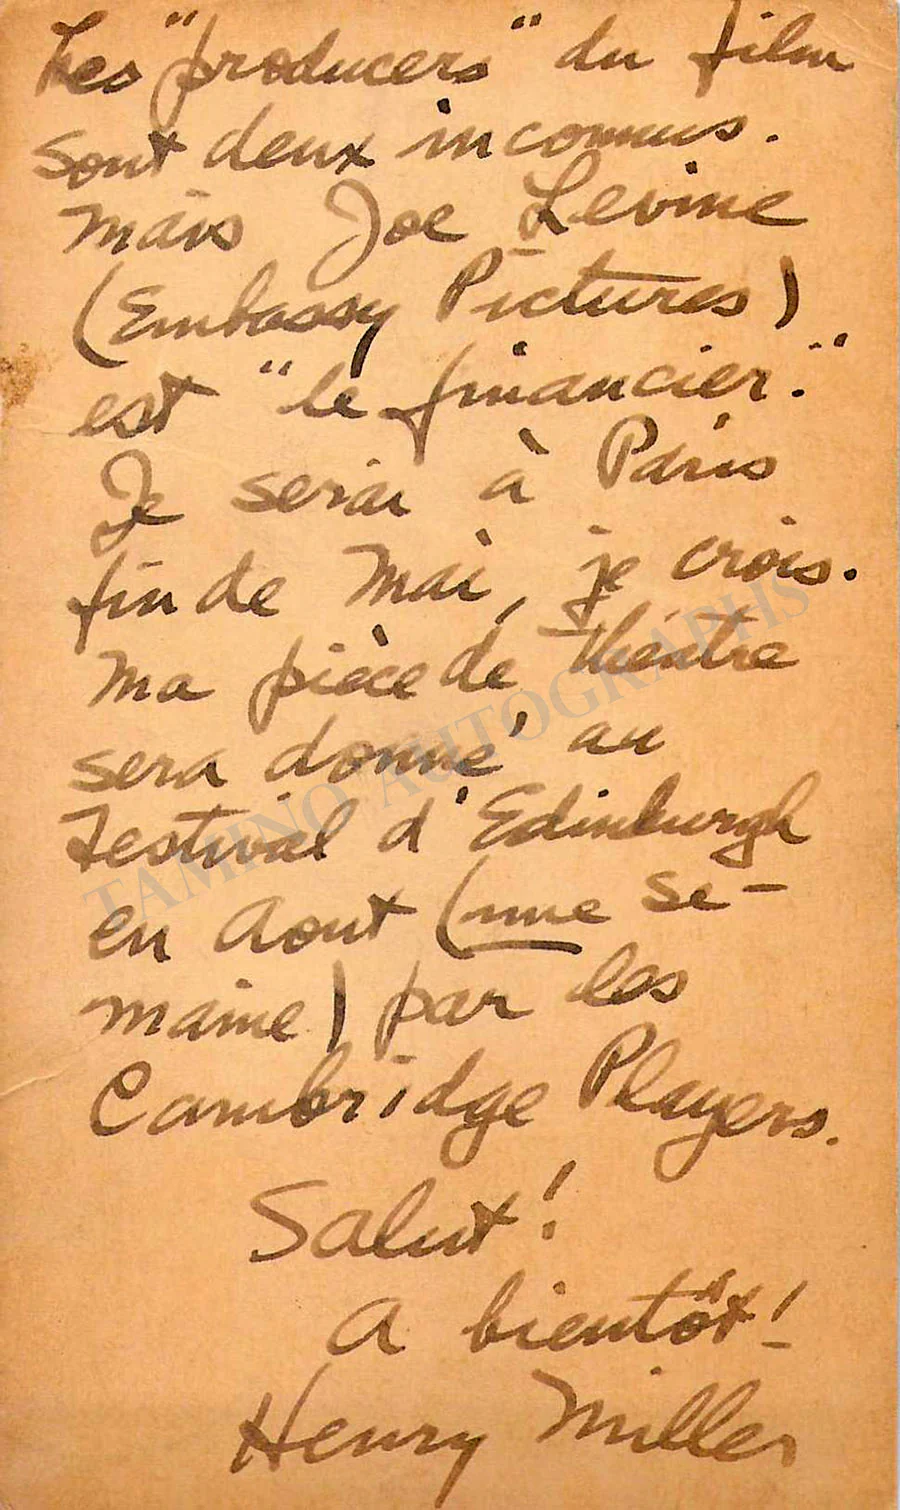 Les "producers" du film
sont deux inconnus.
Mais Joe Levine
(Embassy Pictures)
est "le financier."
Je serai à Paris
fin de Mai, je crois.
Ma pièce de théâtre
sera donné au
Festival d'Edinburgh
en Aout (une se-
maine) par les
Cambridge Players.
Salut!
A bientôt!
Henry Miller
TAMINO AUTOGRAPHS